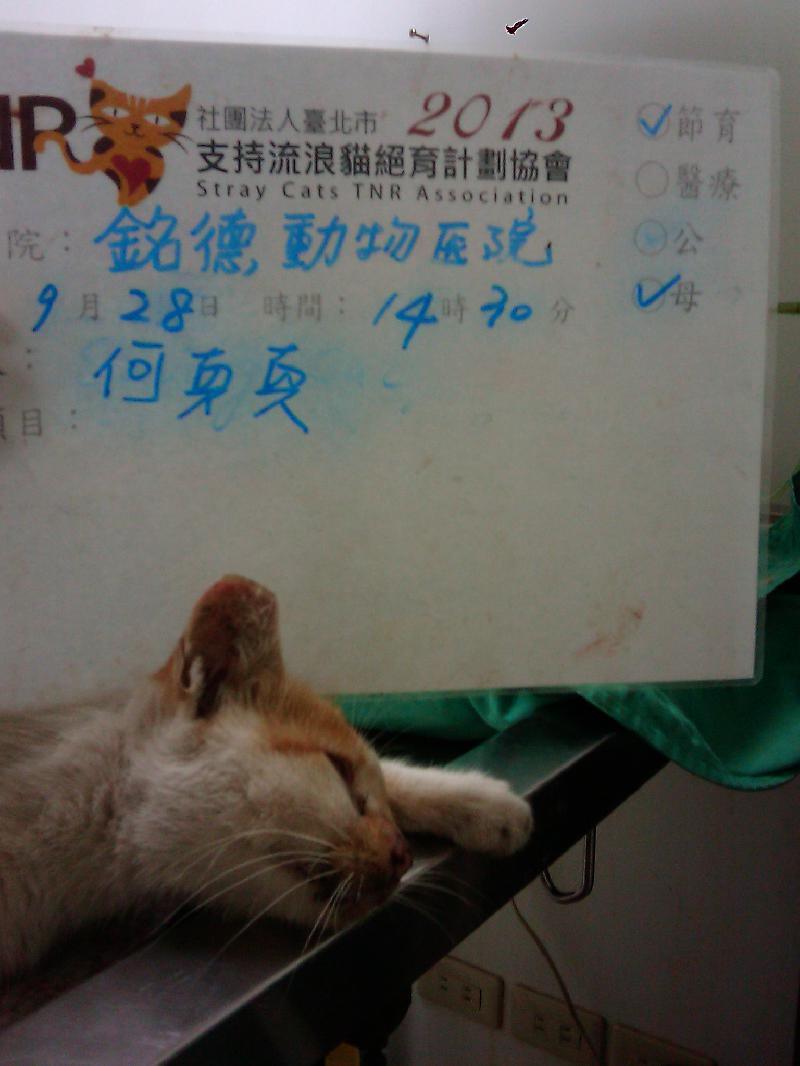 NR
社團法人臺北市 2013
支持流浪貓絕育計劃協會
Stray Cats TNR Association
院：銘德動物医院
9月28日 時間：14時30分
：何頁頁
項目：
節育
醫療
公
母